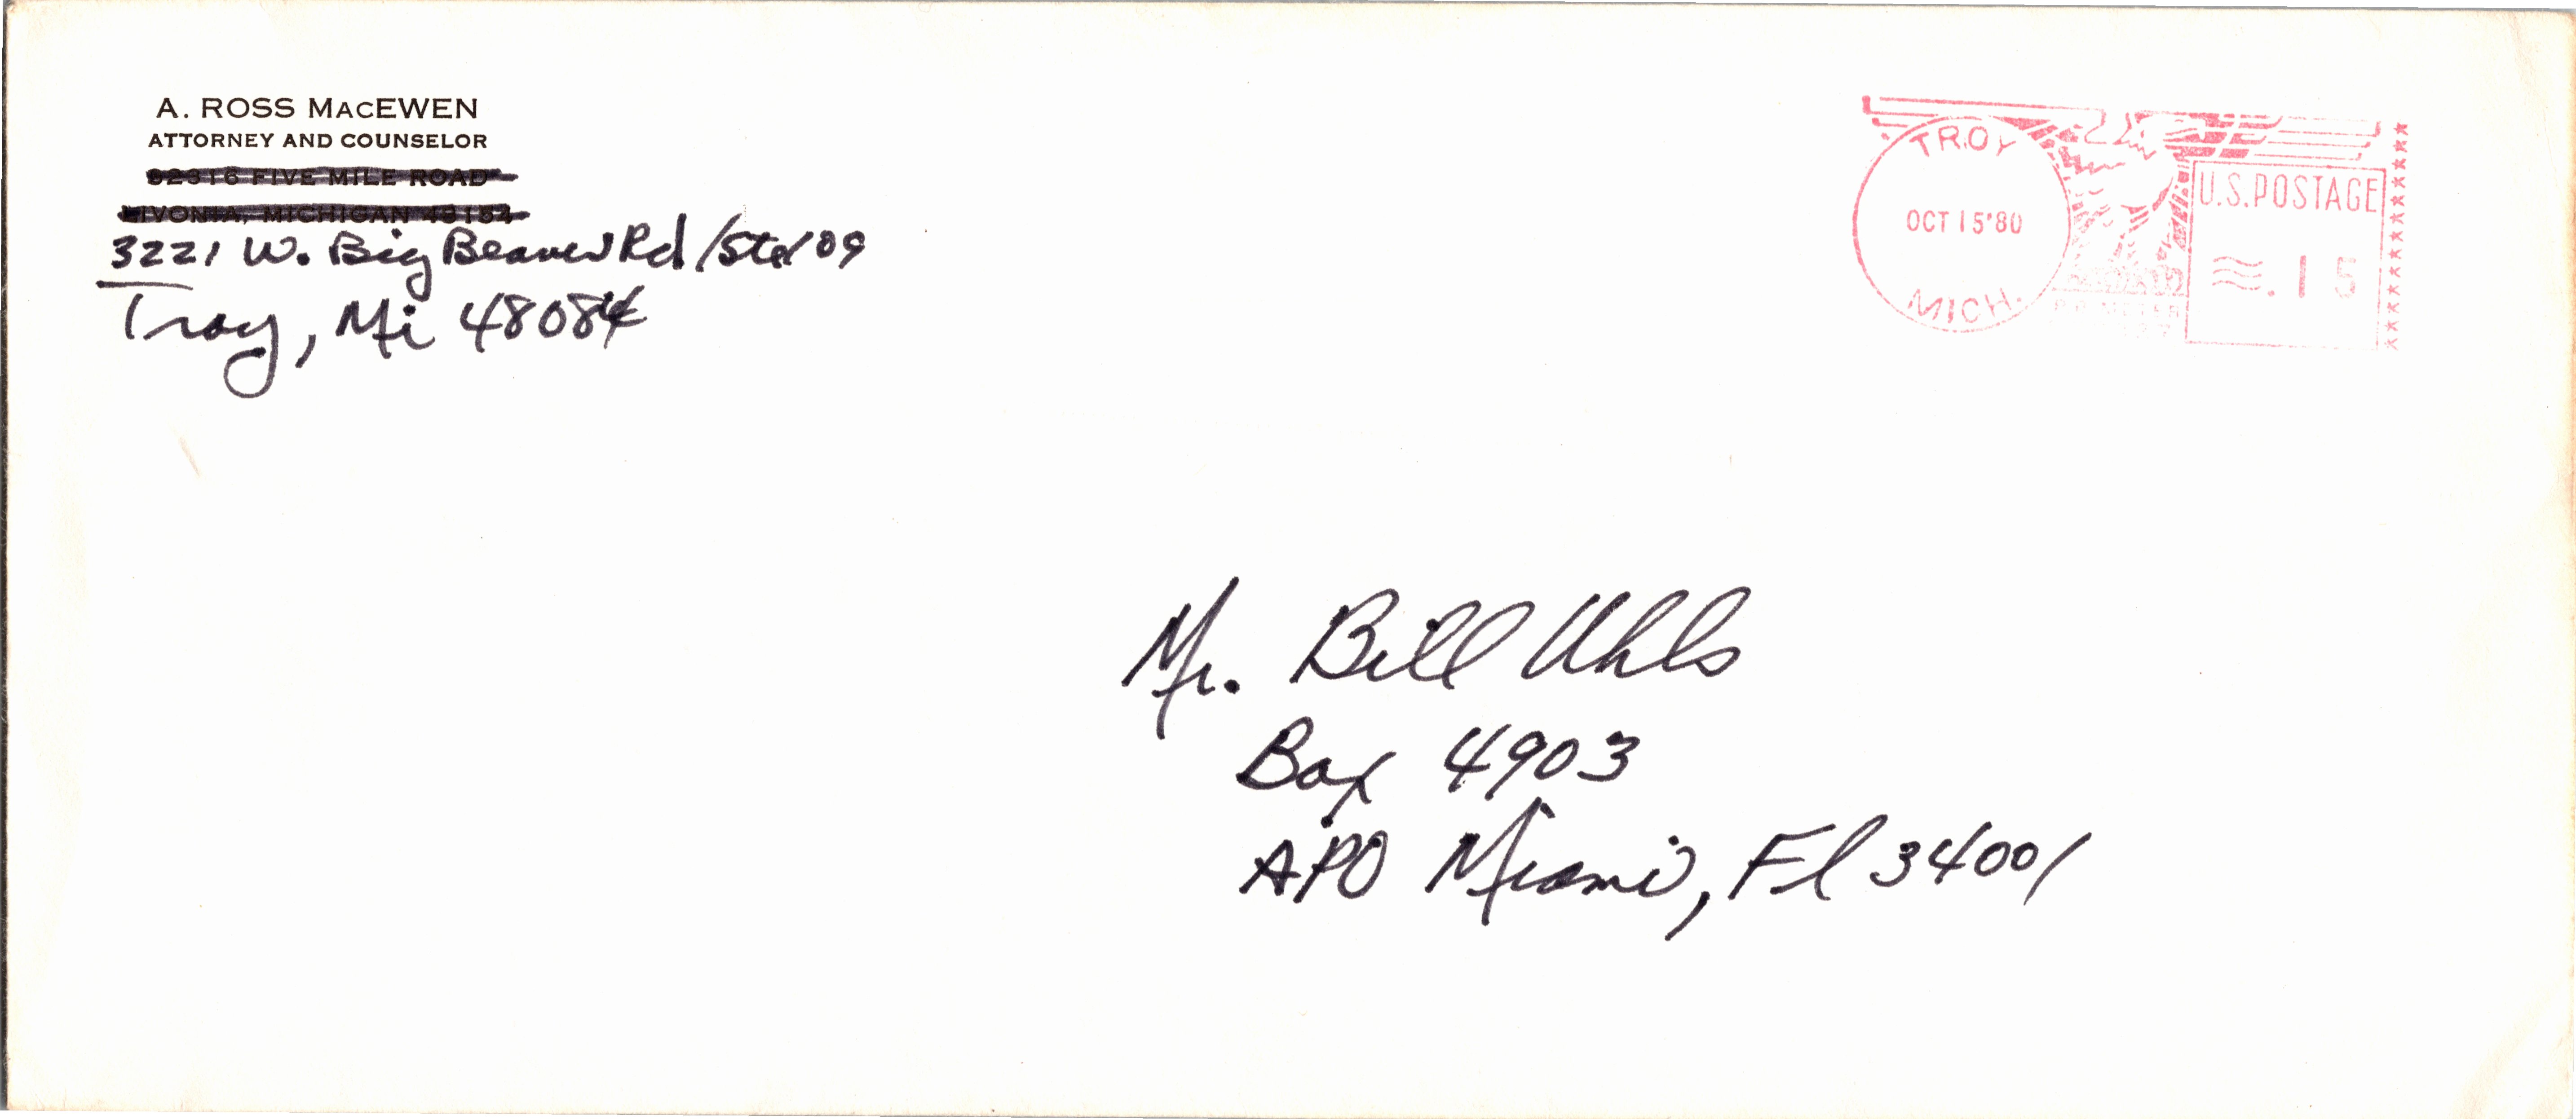 A. ROSS MACEWEN
ATTORNEY AND COUNSELOR
32316 FIVE MILE ROAD
LIVONIA, MICHIGAN 48154
3221 W. Big Beaver Rd/Ste 109
Troy, Mi 48084
TROY
OCT 15'80
MICH.
U.S. POSTAGE
.15
Mr. Bill Uhls
Box 4903
APO Miami, Fl 34001